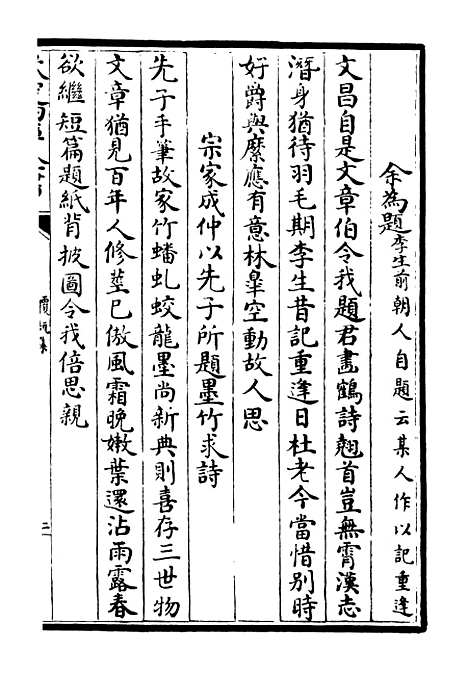 余為題李生前朝人自題云某人作以記重逢
文昌自是文章伯令我題君畫鶴詩翹首豈無霄漢志
潛身猶待羽毛期李生昔記重逢日杜老今當惜別時
好爵與縻應有意林皐空動故人思
宗家成仲以先子所題墨竹求詩
先子手筆故家竹蟠虬蛟龍墨尚新典則喜存三世物
文章猶見百年人修莖已傲風霜晚嫩葉還沾雨露春
欲繼短篇題紙背披圖令我倍思親
三